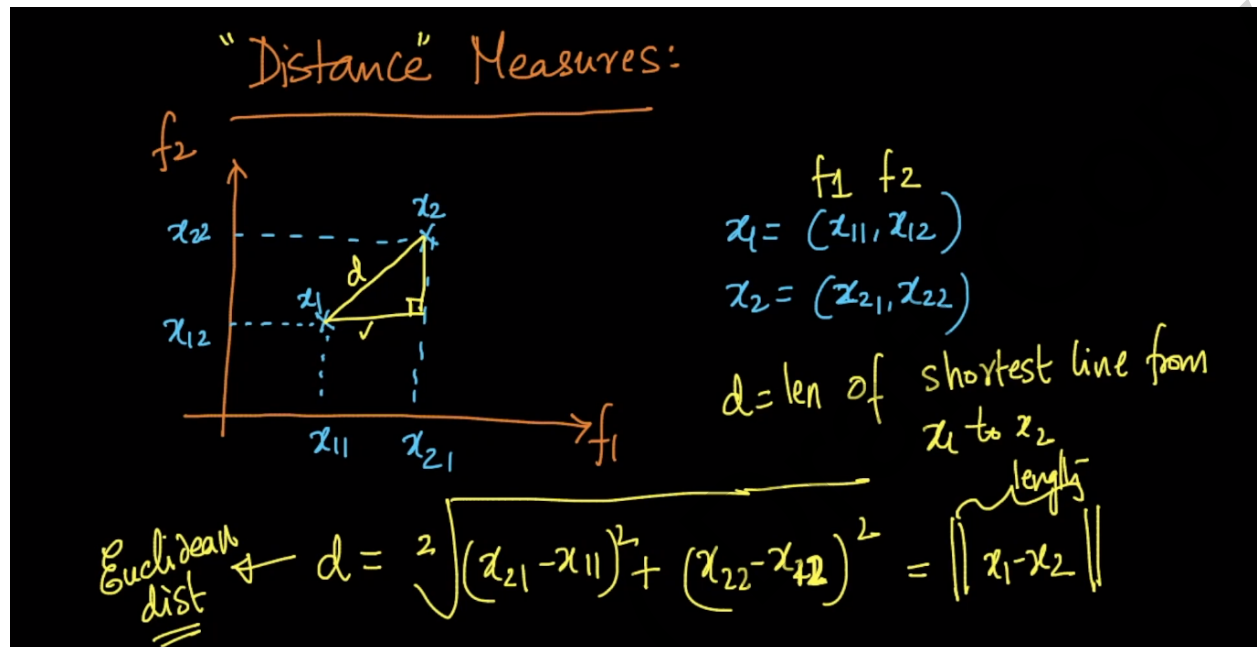 "Distance" Measures:
f2
x22
x2
d
x1
x12
✓
x11
x21
f1
f1 f2
x1 = (x11, x12)
x2 = (x21, x22)
d = len of shortest line from
x1 to x2
length
Euclidean
dist
← d = ²√(x21 - x11)² + (x22 - x12)² = || x1 - x2 ||